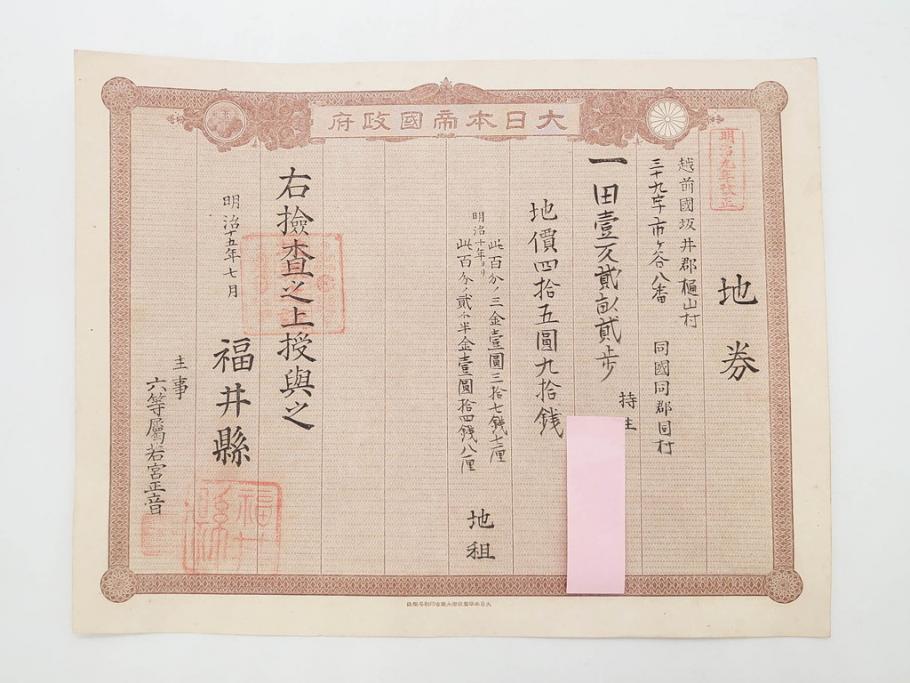 大日本帝國政府
明治九年改正
地券
越前國坂井郡樋山村
三十九字市ヶ谷八番 同國同郡同村
一田壹反貳畝貳歩 持主
地價四拾五圓九拾錢
此百分ノ三金壹圓三拾七錢七厘 地租
明治十年ヨリ
此百分ノ貳ヶ半金壹圓拾四錢八厘
右撿査之上授與之
明治十五年七月 福井縣
主事
六等屬若宮正音